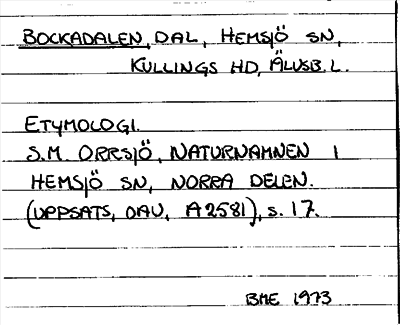 BOCKADALEN, DAL, HEMSJÖ SN,
KULLINGS HD, ÄLVSB. L.
ETYMOLOGI.
S.M. ORRSJÖ, NATURNAMNEN I
HEMSJÖ SN, NORRA DELEN.
(UPPSATS, OAU, A2581), S. 17.
BME 1973